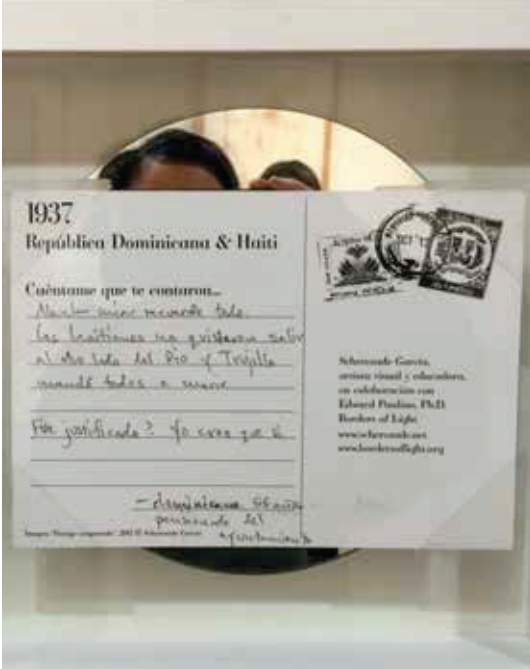 1937
República Dominicana & Haiti
Cuéntame que te contaron...
recuerdo todo
los haitianos no quisieron salir
al otro lado del Río y Trujillo
mandó todos a morir
Fue justificado? Yo creo que sí
– dominicana 66 años
del
ayuntamiento
Scherezade García,
artista visual y educadora,
en colaboración con
Edward Paulino, Ph.D.
Borders of Light
www.scherezade.net
www.borderoflight.org